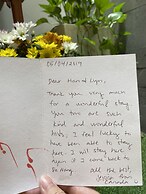 05/04/2019
Dear Hon and Lyn,
Thank you very much
for a wonderful stay.
You two are such
kind and wonderful
hosts, I feel lucky to
have been able to stay
here. I will stay here
again if I come back to
all the best,